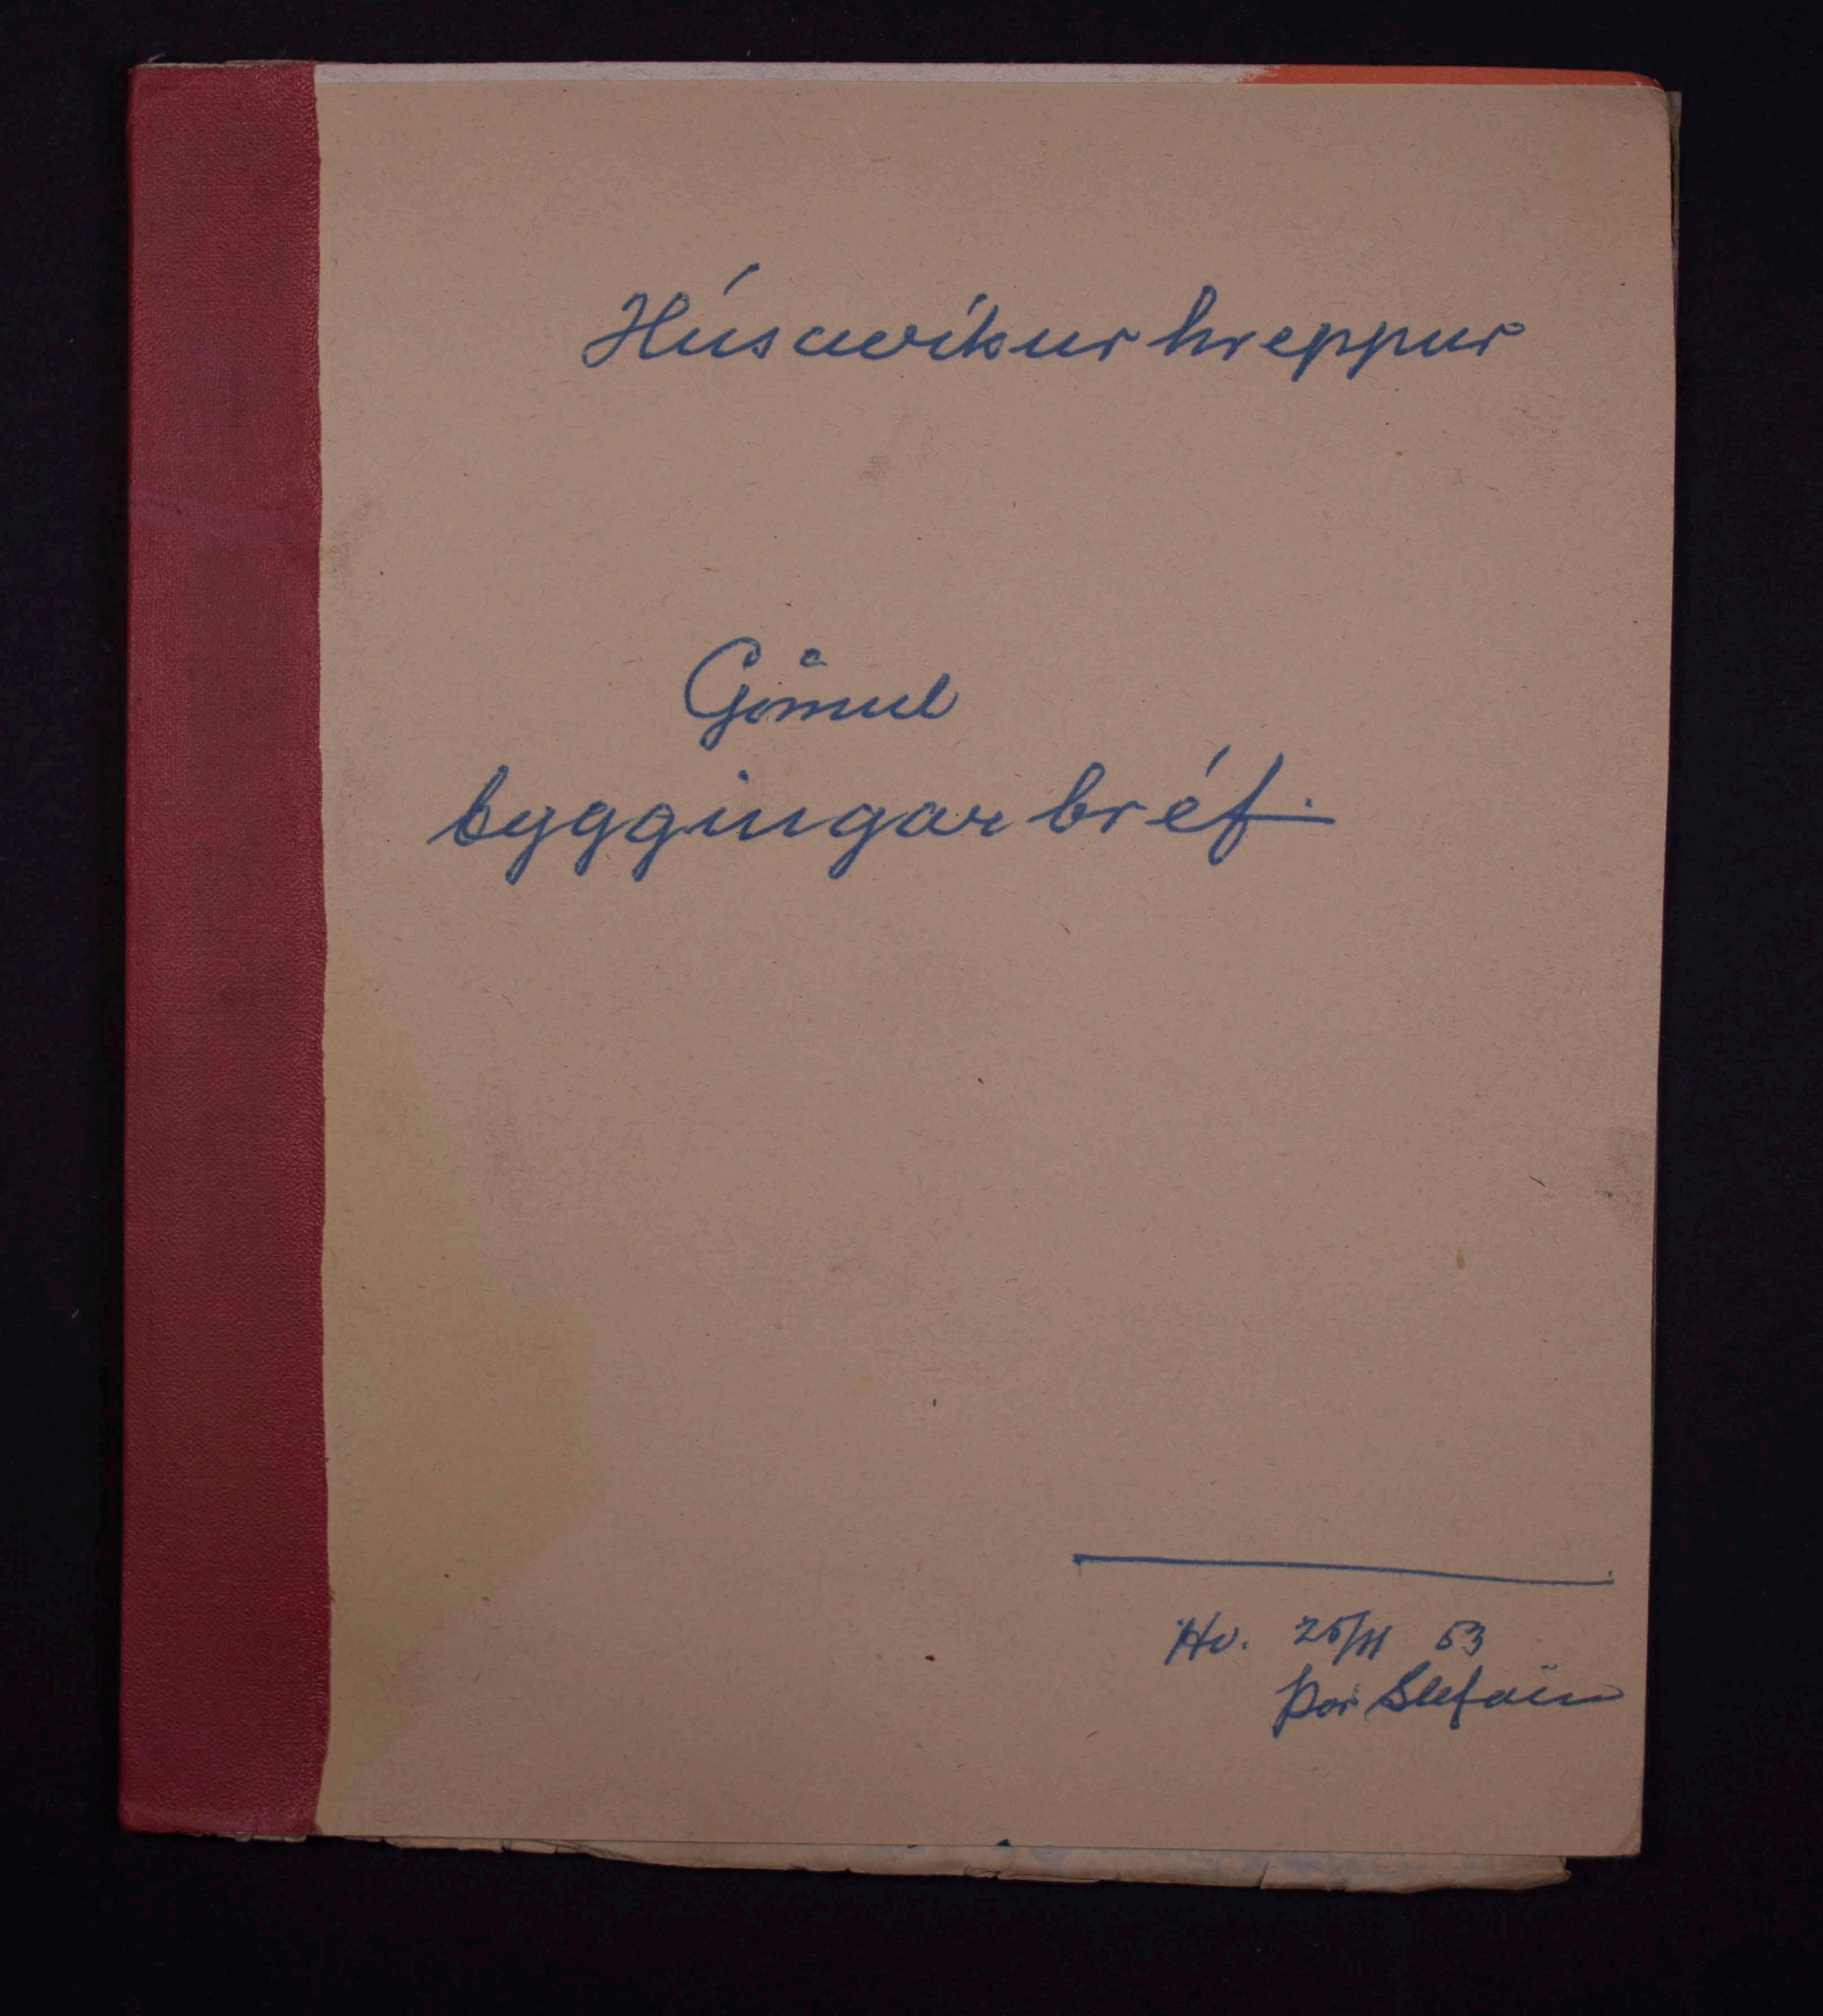 Húsavíkurhreppur
Gömul
byggingarbréf.
Hv. 25/11 53
Þór Stefáns